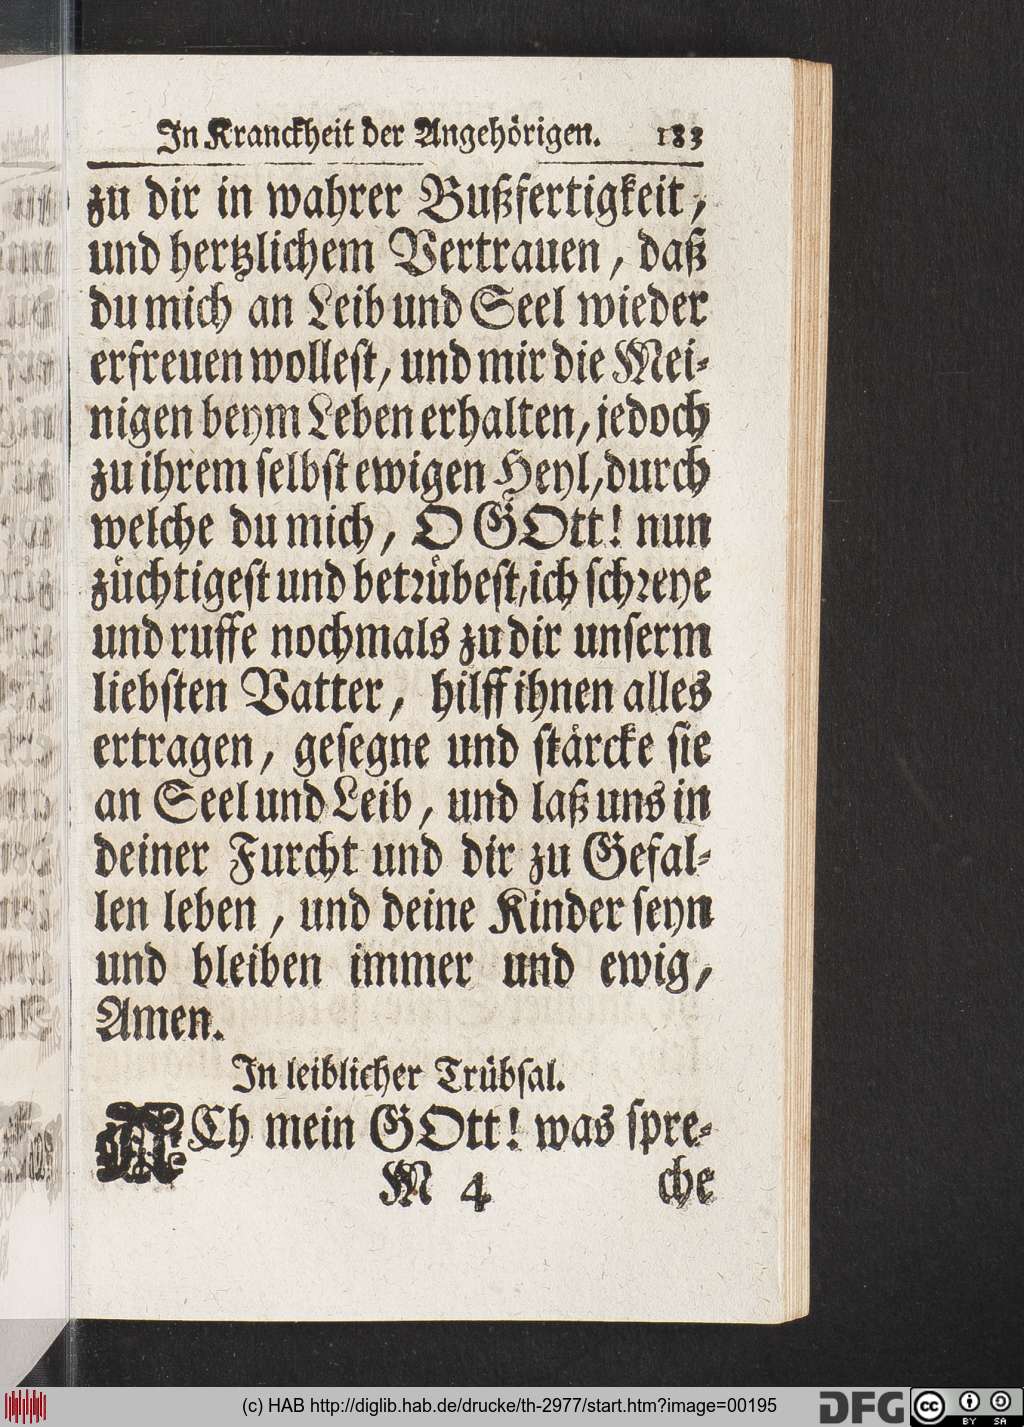 In Kranckheit der Angehörigen. 183
zu dir in wahrer Bußfertigkeit,
und hertzlichem Vertrauen, daß
du mich an Leib und Seel wieder
erfreuen wollest, und mir die Mei-
nigen beym Leben erhalten, jedoch
zu ihrem selbst ewigen Heyl, durch
welche du mich, O GOtt! nun
züchtigest und betrübest, ich schreye
und ruffe nochmals zu dir unserm
liebsten Vatter, hilff ihnen alles
ertragen, gesegne und stärcke sie
an Seel und Leib, und laß uns in
deiner Furcht und dir zu Gefal-
len leben, und deine Kinder seyn
und bleiben immer und ewig,
Amen.
In leiblicher Trübsal.
ACh mein GOtt! was spre-
M 4 che
(c) HAB http://diglib.hab.de/drucke/th-2977/start.htm?image=00195
DFG
cc BY SA